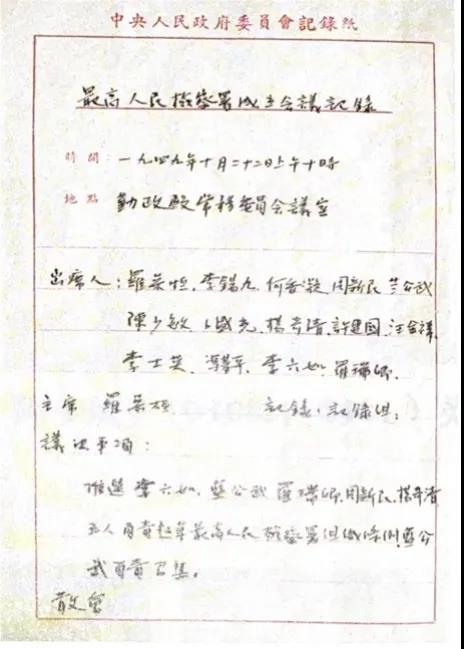 中央人民政府委員會記錄紙
最高人民檢察署成立會議記錄
時間：一九四九年十月二十二日上午十時
地點 勤政殿常務委員會議室
出席人：羅榮桓、李錫九、何香凝、周新民、藍公武
陳少敏、卜盛光、楊奇清、許建國、汪金祥、
李士英、馮基平、李六如、羅瑞卿、
主席 羅榮桓 記錄：記錄組：
議決事項：
推選李六如、藍公武、羅瑞卿、周新民、楊奇清
五人負責起草最高人民檢察署組織條例，藍公
武負責召集。
散會